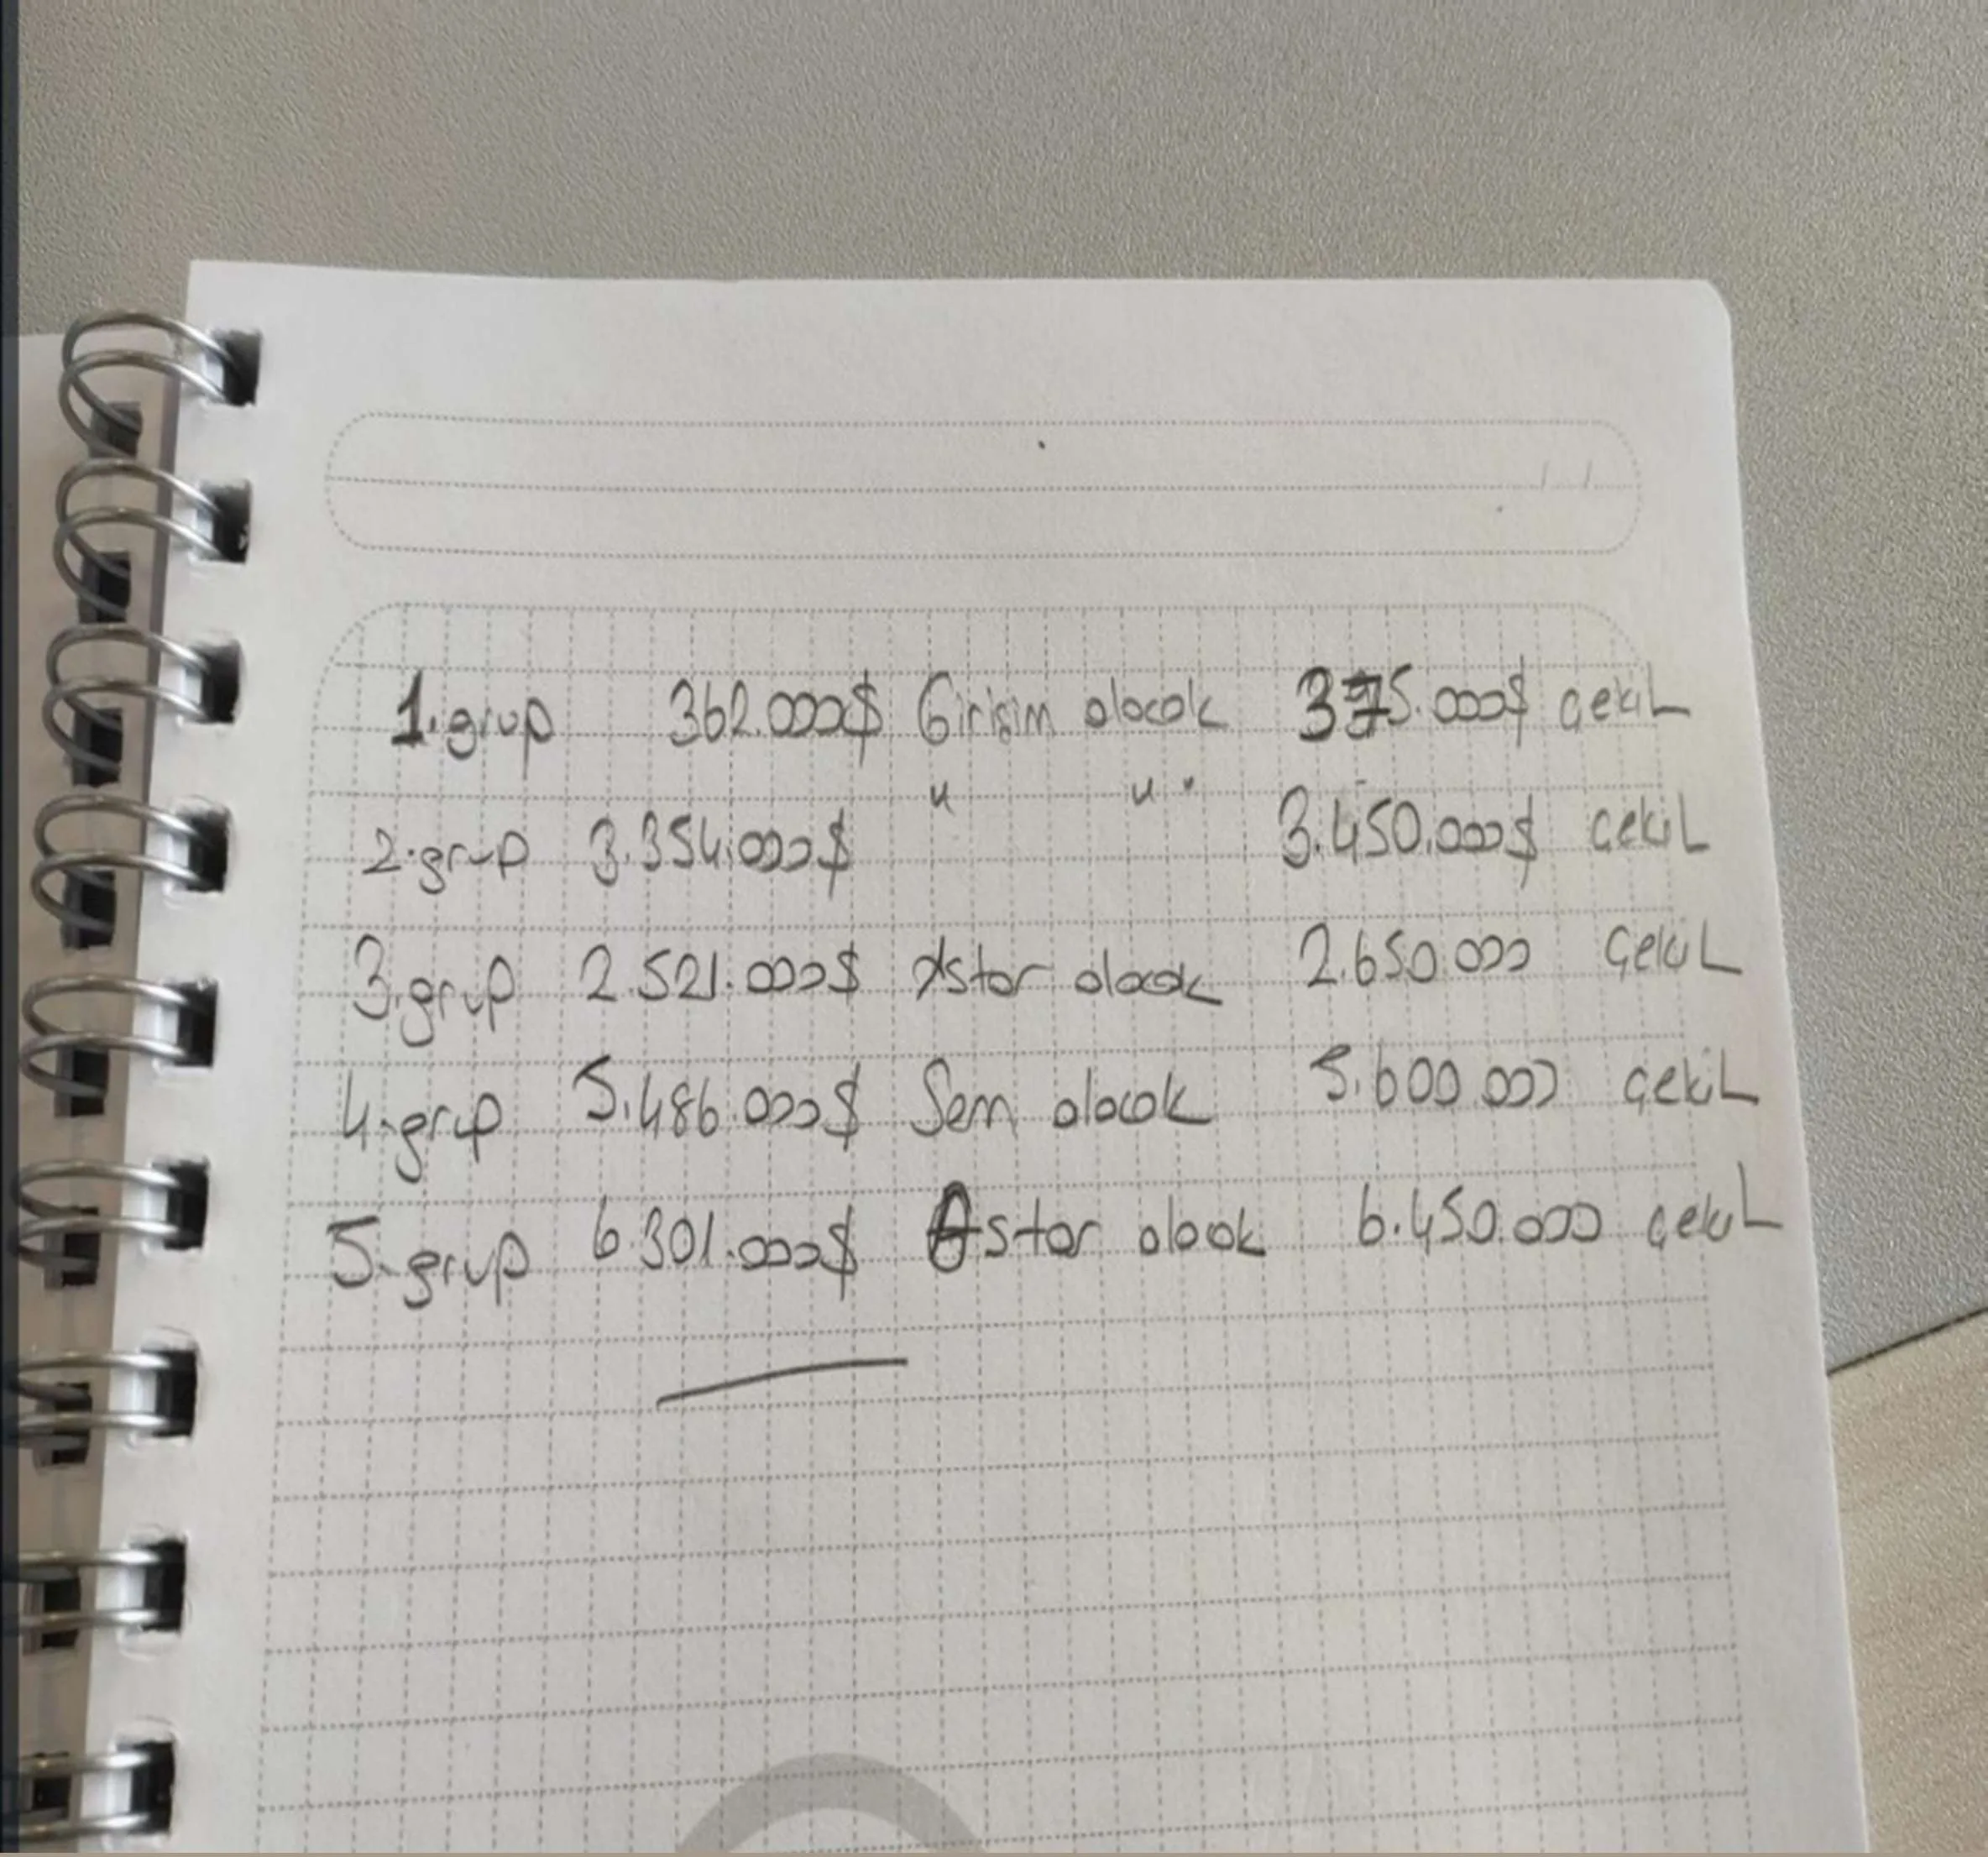 1.grup 362.000$ Girişim alacak 375.000$ çekil
2.grup 3.354.000$ " " 3.450.000$ çekil
3.grup 2.521.000$ Astor alacak 2.650.000 çekil
4.grup 5.486.000$ Sem alacak 5.600.000 çekil
5.grup 6.301.000$ Astor alacak 6.450.000 çekil